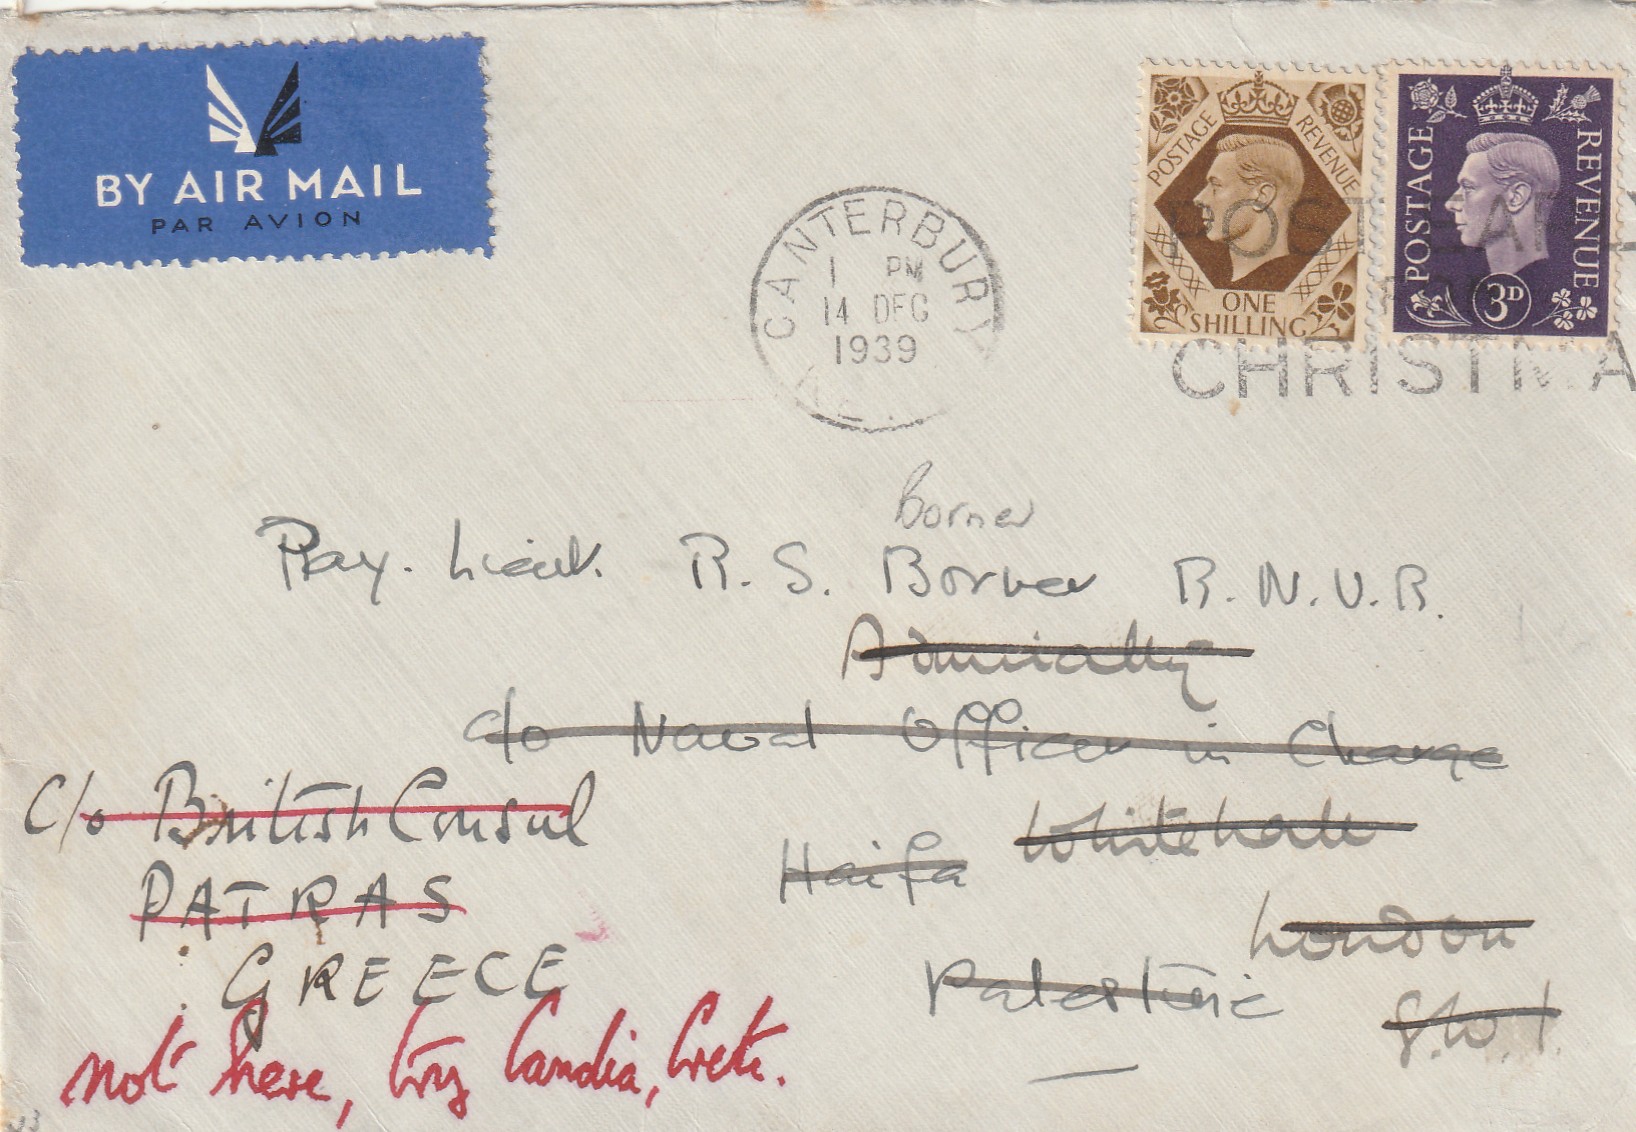 BY AIR MAIL
PAR AVION
POSTAGE REVENUE
ONE
SHILLING
POSTAGE REVENUE
3D
CANTERBURY
1 PM
14 DEC
1939
POST EARLY
CHRISTMA
Borner
Pay. Lieut. R. S. Borner R.N.V.R.
Admiralty
c/o Naval Officer in Charge
Whitehall
Haifa
London
Palestine
S.W.1.
C/o British Consul
PATRAS
GREECE
not here, try Candia, Crete.